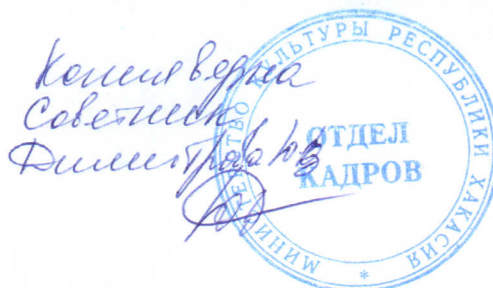 Копия верна
Советник
Димитрова Ю В
МИНИСТЕРСТВО КУЛЬТУРЫ РЕСПУБЛИКИ ХАКАСИЯ
*
ОТДЕЛ
КАДРОВ